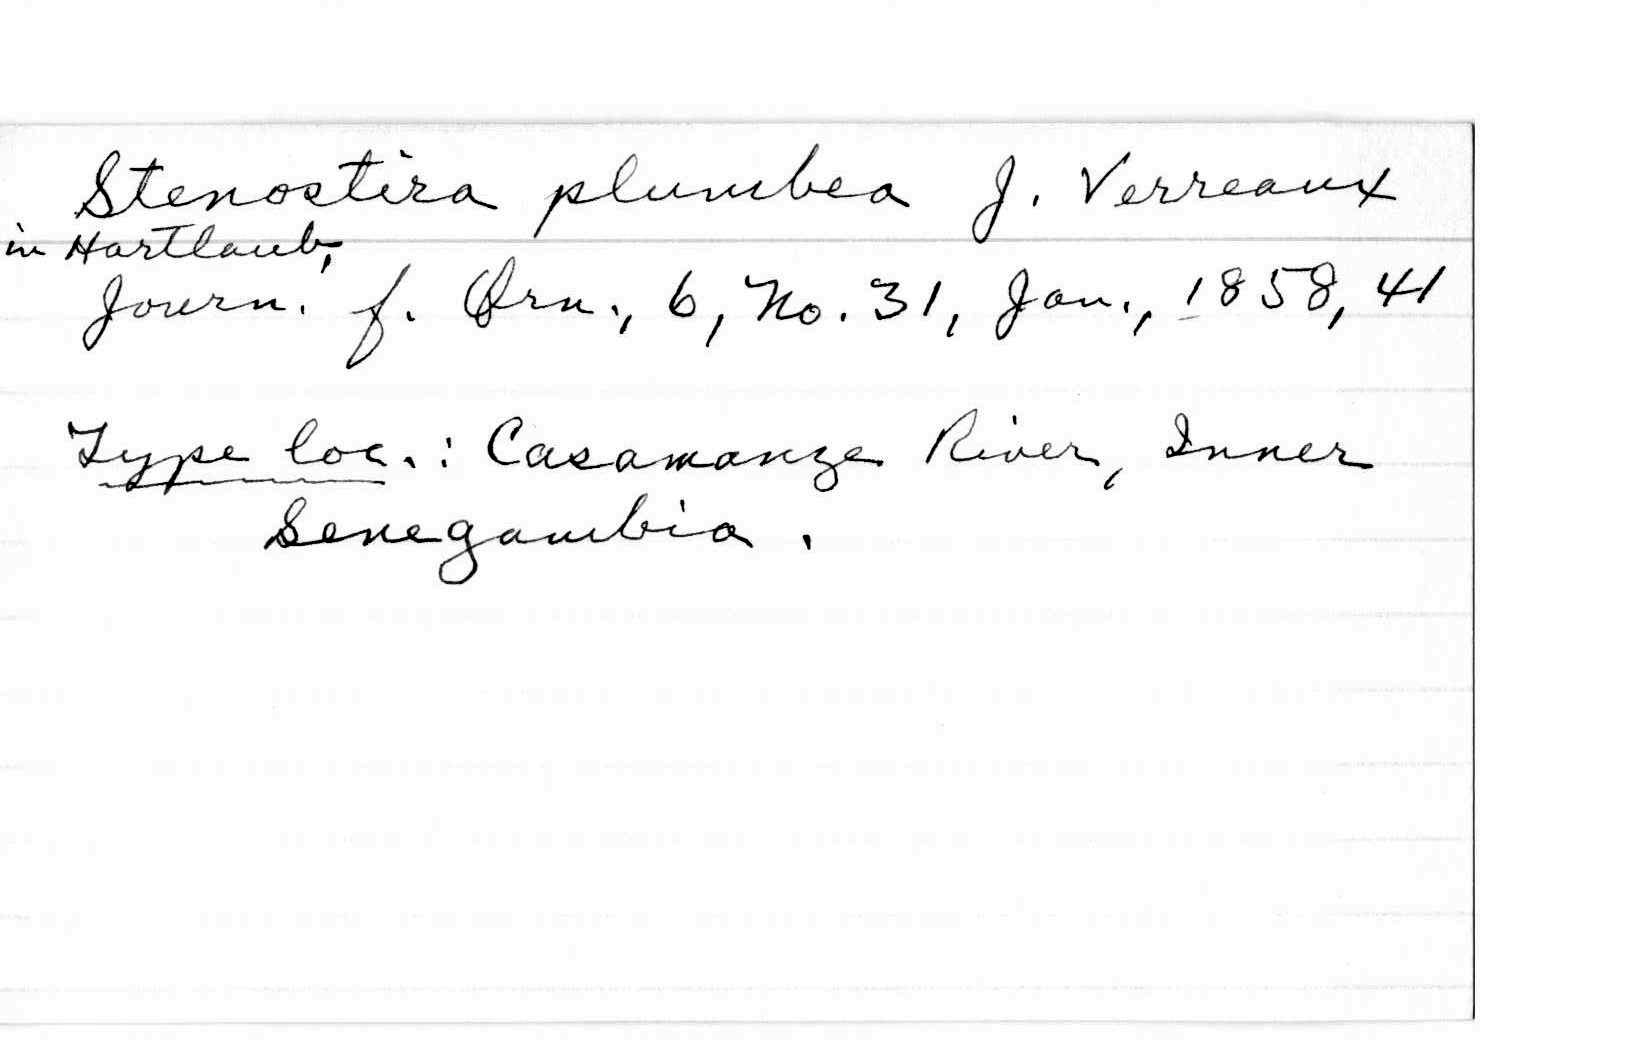 Stenostira plumbea J. Verreaux
in Hartlaub,
Journ. f. Orn., 6, No. 31, Jan., 1858, 41
Type loc.: Casamanze River, Inner
Senegambia.